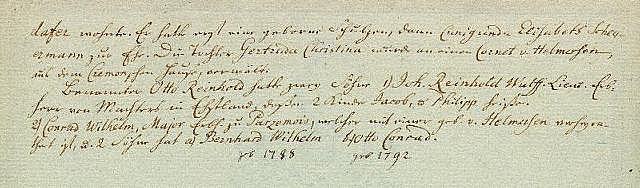 dafer wohnte. Er hatte erst eine geborne Schultzen, dann Cunigunda Elisabeth Scheu-
ermann zur Ehe. Die Tochter Gertruda Christina wurde an einen Cornet v. Helmersen,
aus dem Cremonschen Hause, vermält.
Benannter Otto Reinhold hatte zwey Söhne 1) Joh. Reinhold Wulff. Lieut. Erb-
herr von Machters in Ehstland, dessen 2 Kinder Jacob, Philipp heißen.
2) Conrad Wilhelm, Major Erbh. zu Purzemois, welcher mit einer geb. v. Helmersen verheyra-
thet ist, u. 2 Söhne hat a) Bernhard Wilhelm b) Otto Conrad.
geb 1788 geb 1792